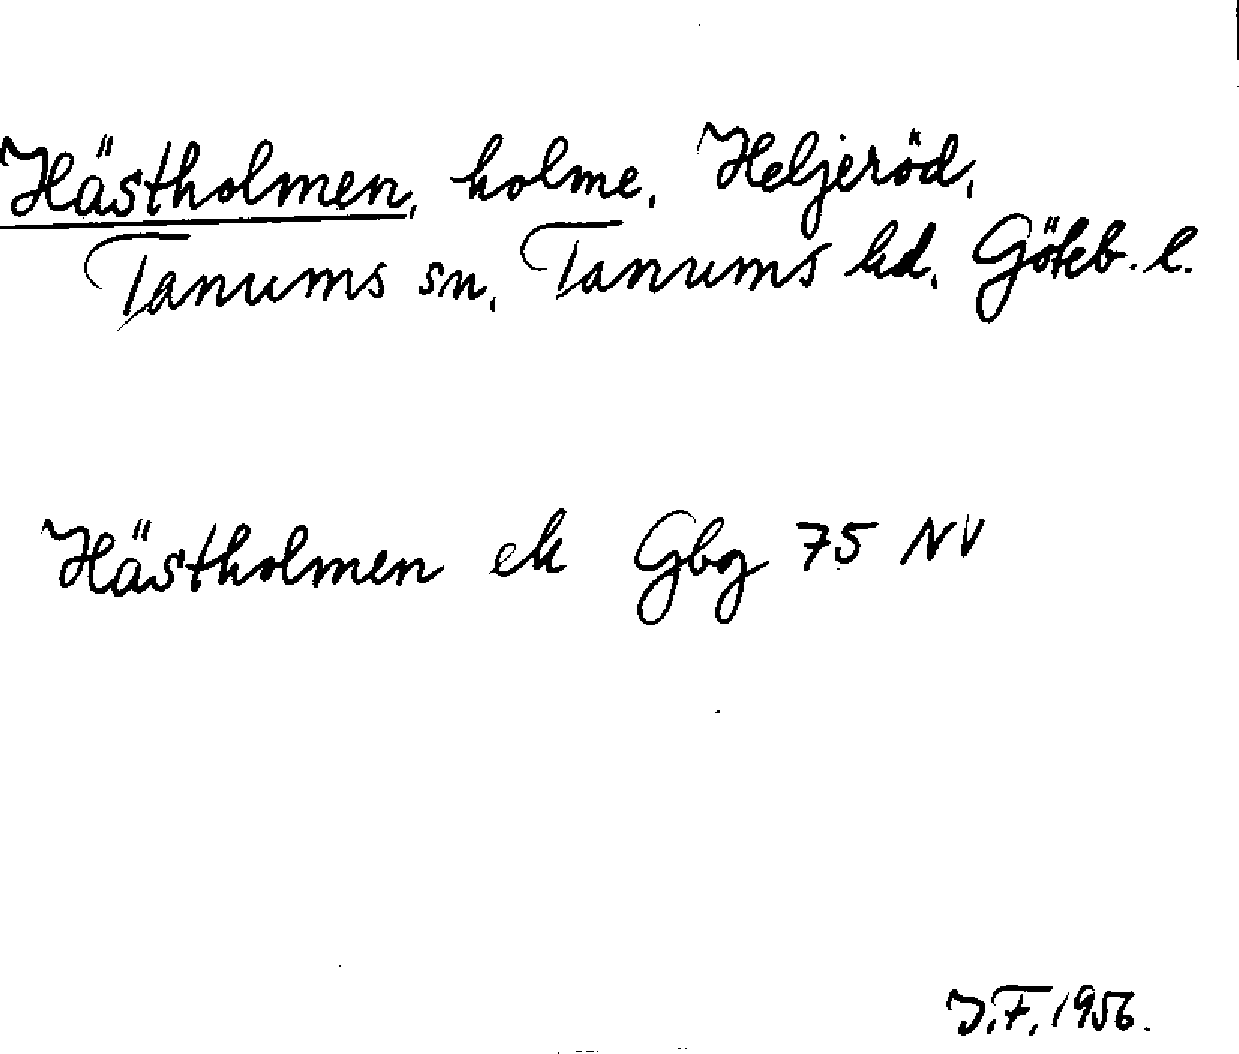 Hästholmen, holme, Heljeröd,
Tanums sn, Tanums hd, Göteb. l.
Hästholmen ek Gbg 75 NV
J.F. 1956.